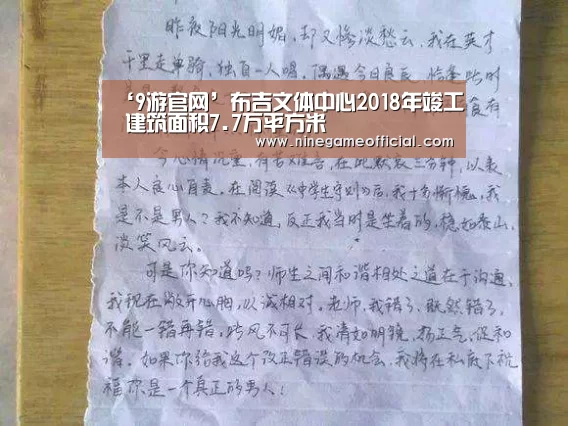 昨夜阳光明媚，却又惨淡愁云，我在英才
千里走单骑，独自一人喝，偶遇今日良辰，恰逢此时
‘9游官网’布吉文体中心2018年竣工
建筑面积7.7万平方米
www.ninegameofficial.com
食有
今心情沉重，有苦难言，在此默哀三分钟，以表
本人良心自责，在阅读《中学生守则》后，我十分惭愧，我
是不是男人？我不知道，反正我当时是坐着的，稳如泰山，
谈笑风云。
可是你知道吗？师生之间和谐相处之道在于沟通，
我现在敞开心胸，以诚相对，老师，我错了，既然错了，
不能一错再错，此风不可长，我清如明镜，扬正气，促和
谐。如果你给我这个改正错误的机会，我将在私底下祝
福你是一个真正的男人！